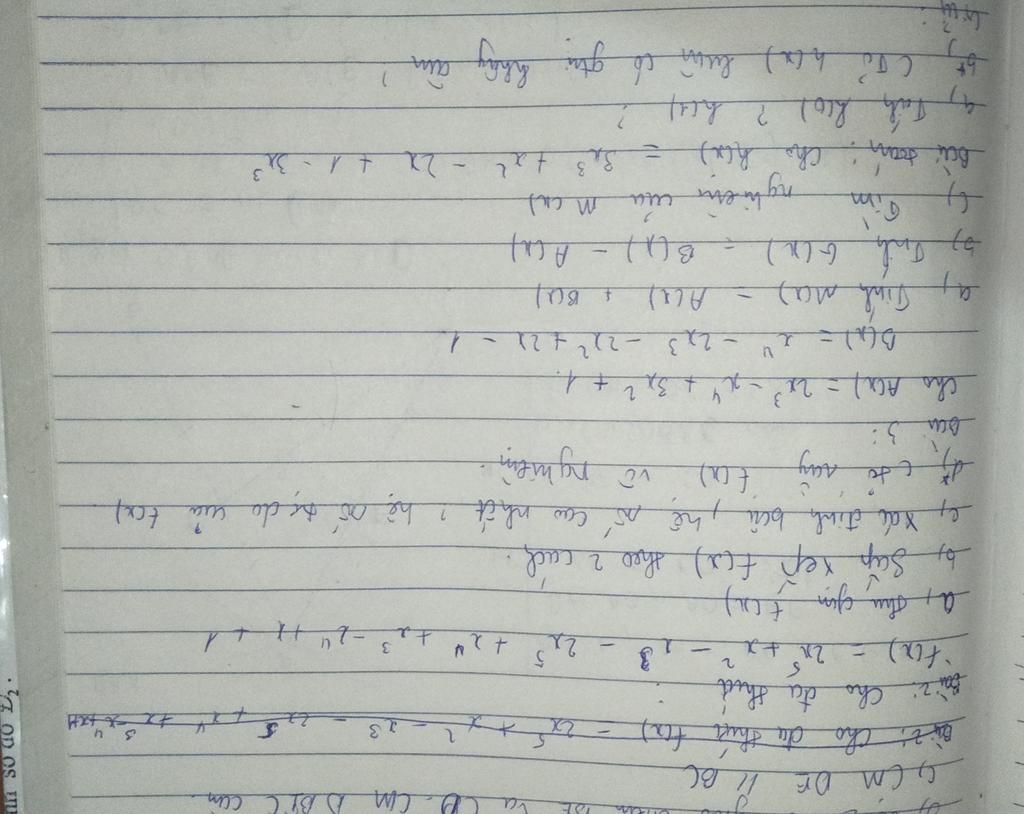 c, CM DE // BC
Bài 2: Cho đa thức f(x) = 2x⁵ + x² - x³ - 2x⁵ + x⁴ + x³ - x⁴ + x + 1
Bài 2: Cho đa thức
f(x) = 2x⁵ + x² - x³ - 2x⁵ + x⁴ + x³ - x⁴ + x + 1
a, thu gọn f(x)
b, Sắp xếp f(x) theo 2 cách.
c, Xác định bậc, hệ số cao nhất? hệ số tự do của f(x)
d*, C tỏ rằng f(x) vô nghiệm.
Bài 3:
Cho A(x) = 2x³ - x⁴ + 3x² + 1.
B(x) = x⁴ - 2x³ - 2x² + 2x - 1
a, Tính M(x) = A(x) + B(x)
b, Tính G(x) = B(x) - A(x)
c, Tìm nghiệm của M(x)
Bài toán: Cho h(x) = 3x³ + x² - 2x + 1 - 3x³
a, Tính h(0)? h(1)?
b*, C Tỏ h(x) luôn có gtrị không âm?
số đo D̂₂.